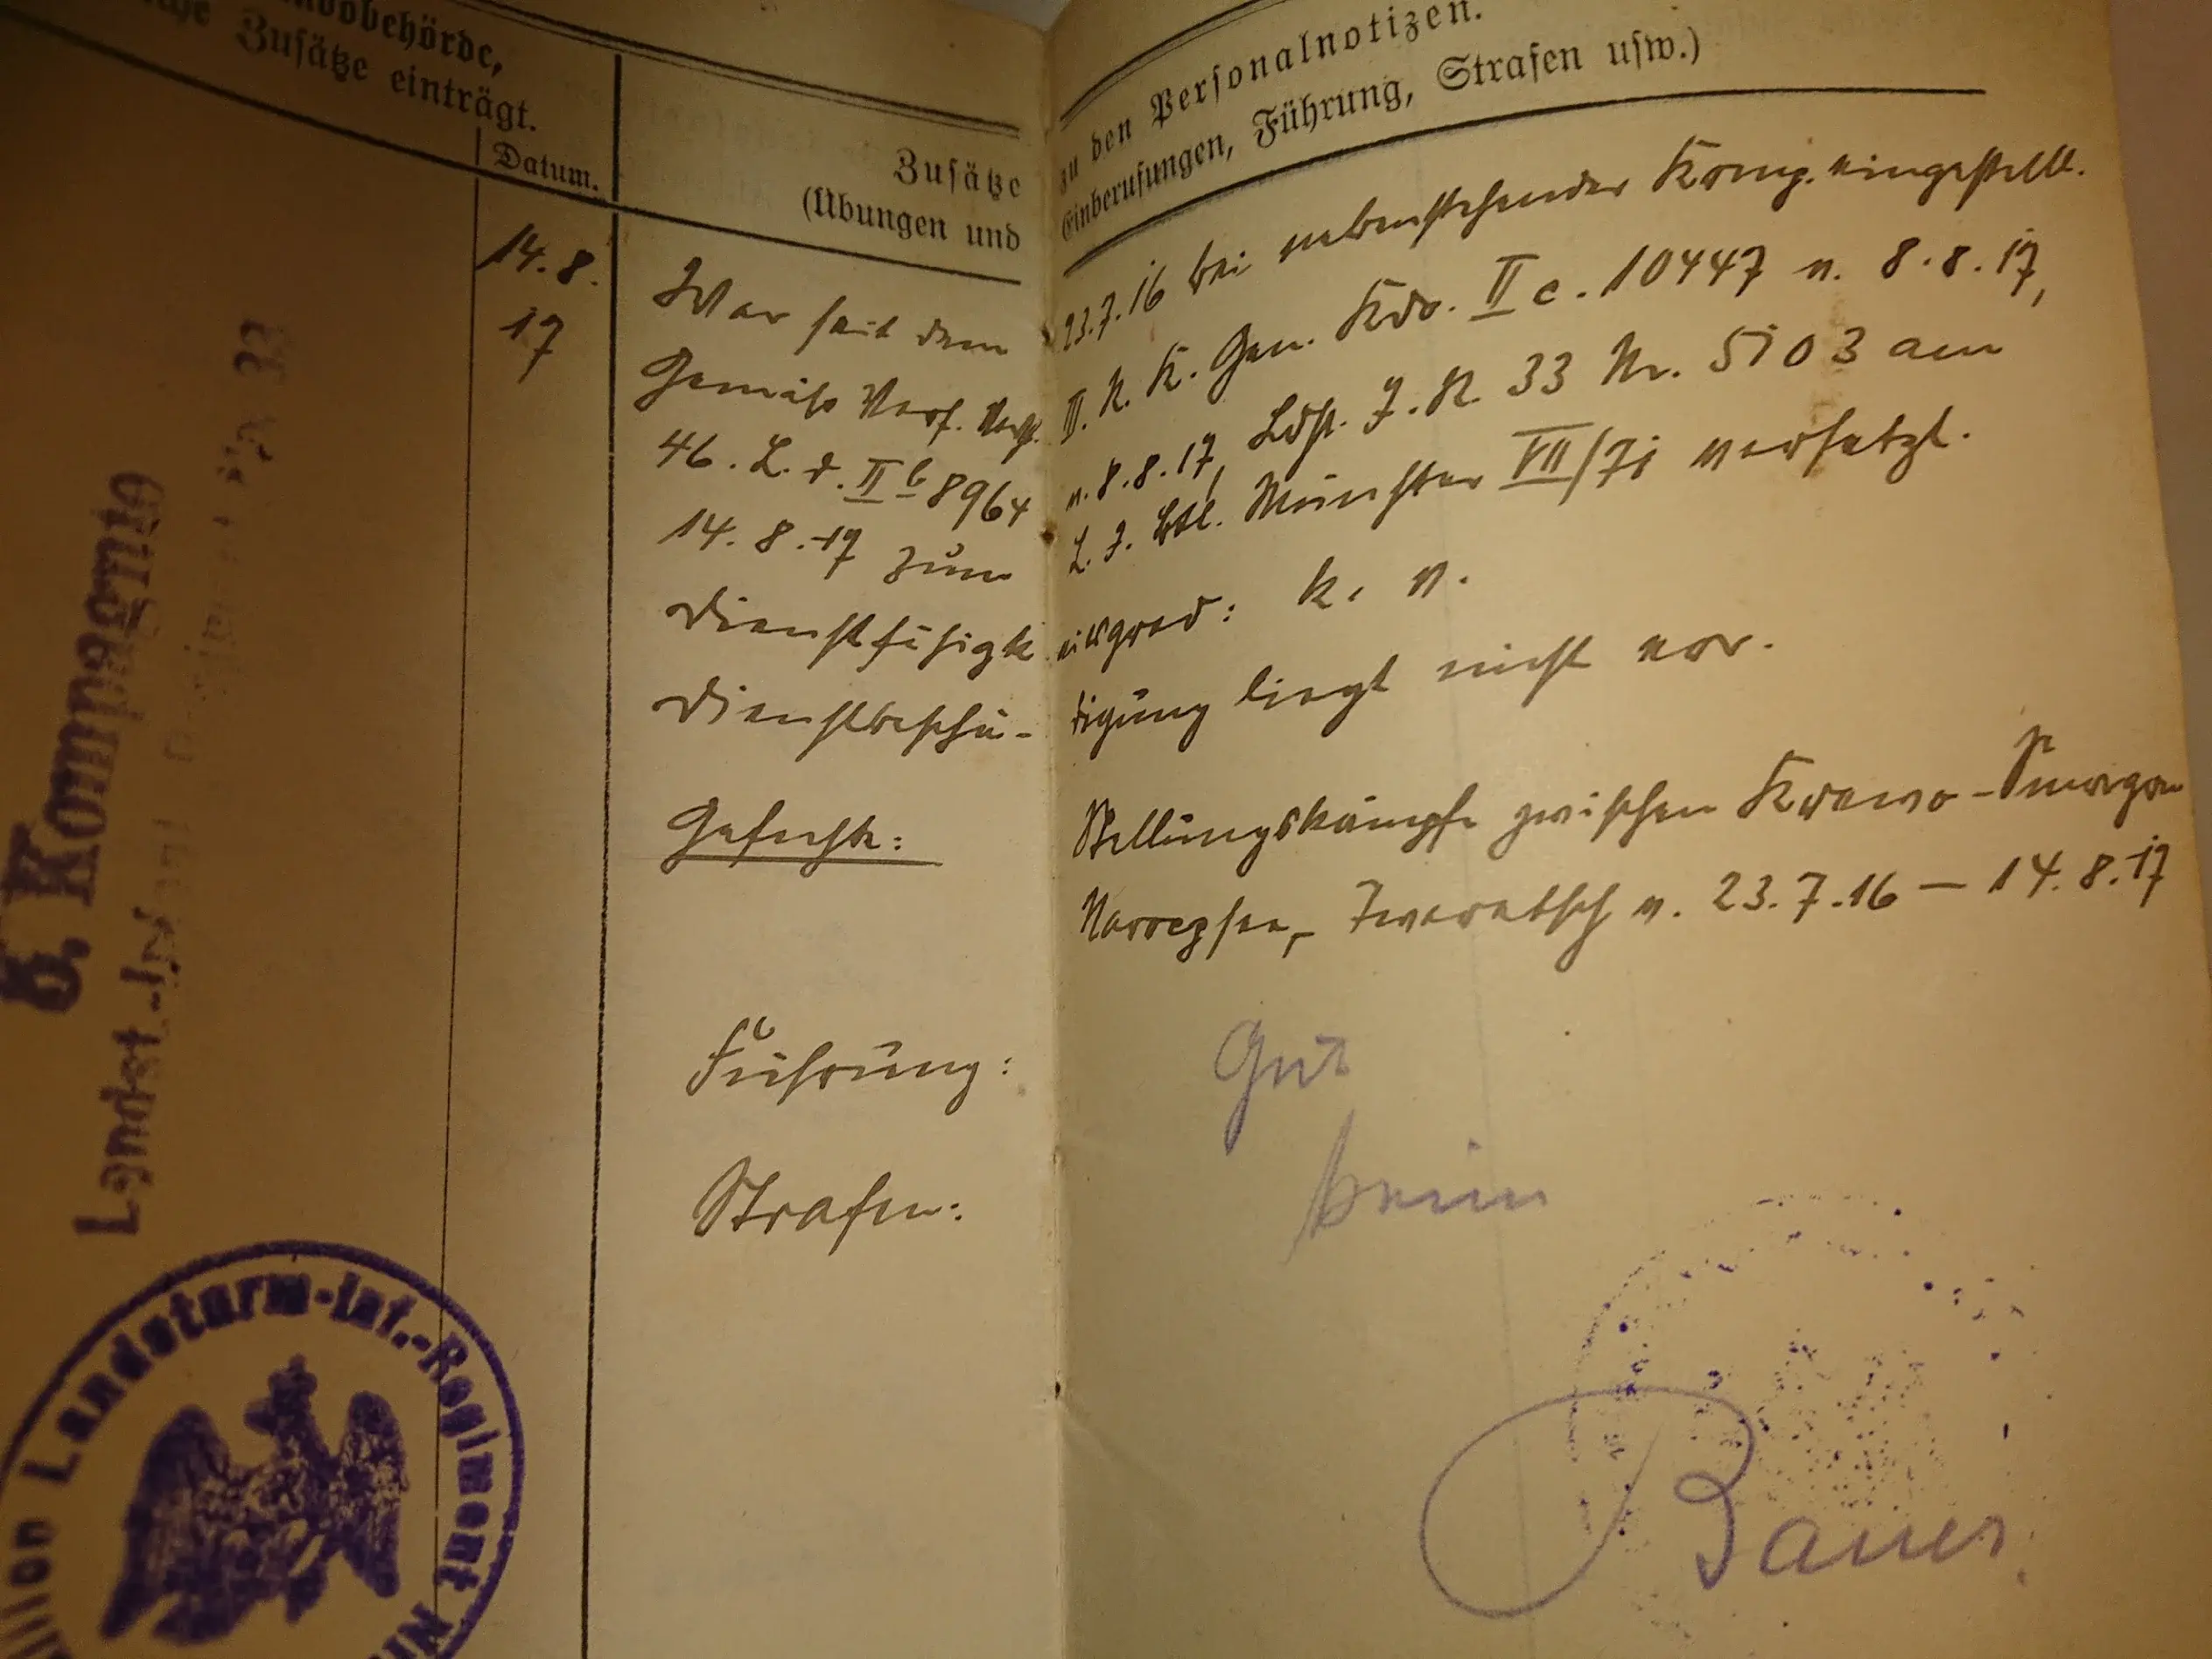 ndobehörde,
che Zusätze einträgt.
Datum.
Zusätze zu den Personalnotizen.
(Übungen und Einberufungen, Führung, Strafen usw.)
14.8.
17
War seit dem 23.7.16 bei nebenstehender Komp. eingestellt.
Gemäß Verf. III. R. K. Gen. Kdo. II c. 10447 v. 8.8.17,
46. L. d. II b 8964 v. 8.8.17, Ldst. J. R. 33 Nr. 5103 am
14.8.17 zum L. J. Btl. Münster VII/71 versetzt.
Dienstfähigkeitsgrad: k. v.
Dienstbeschädigung liegt nicht vor.
Gefechte: Stellungskämpfe zwischen Krewo-Smorgon
Narrozsee, Zweratsch v. 23.7.16 — 14.8.17
Führung: Gut
Strafen: keine
Bauer
6. Kompagnie
Landst.-Inf. Regiment 33
illion Landsturm-Inf.-Regiment Nr